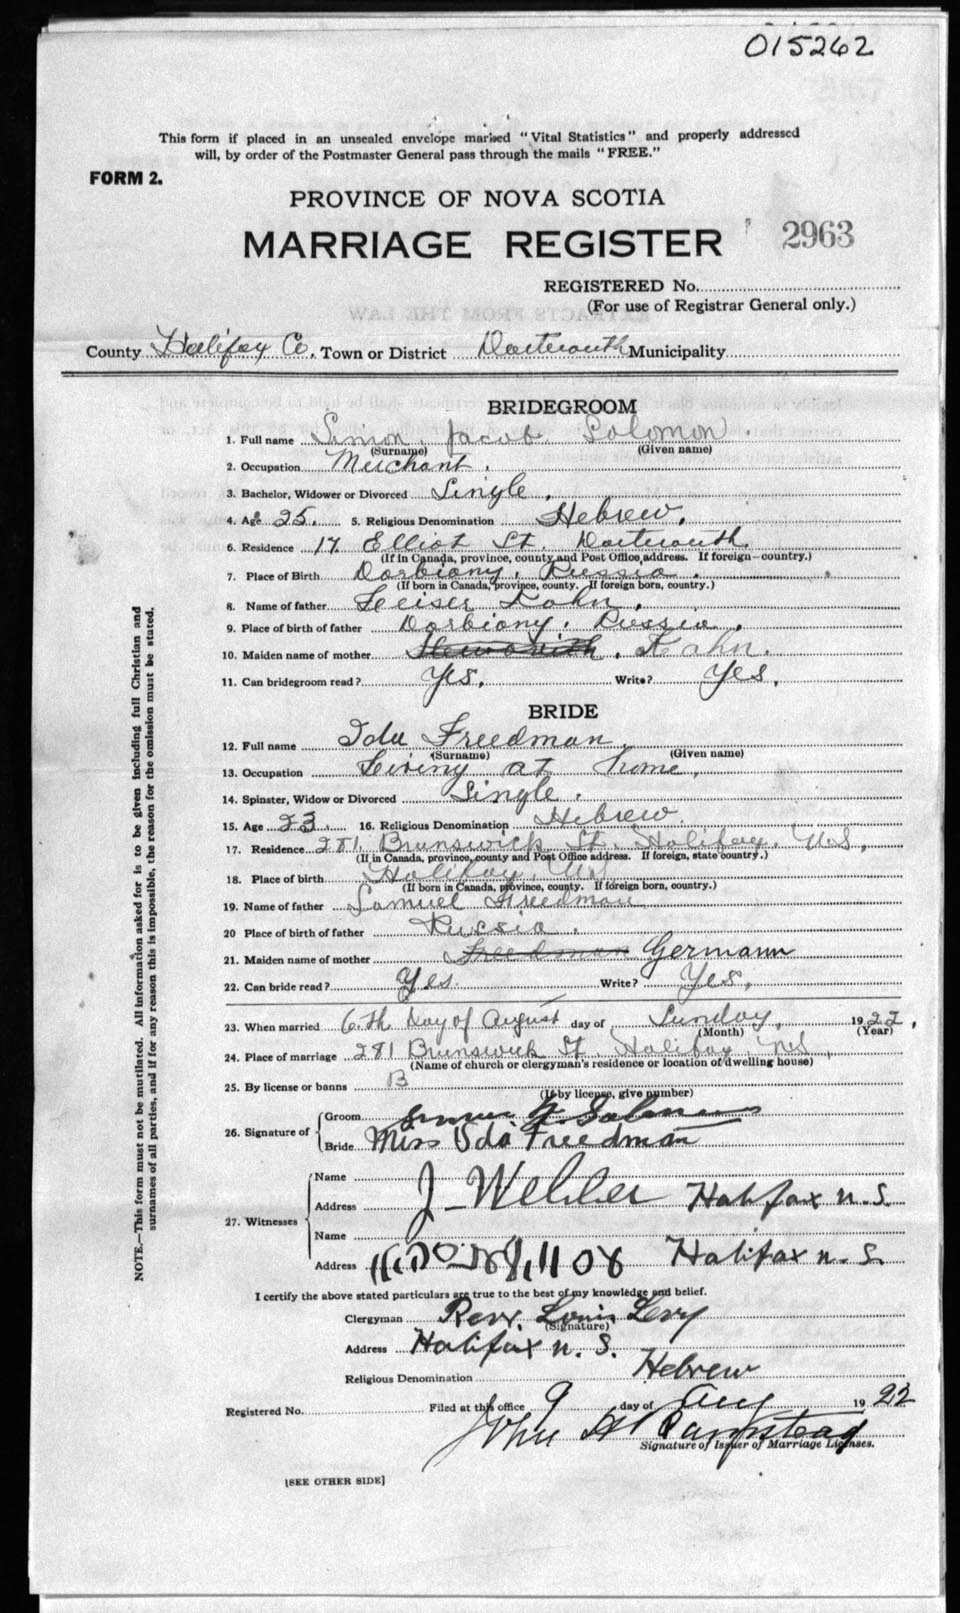 015262
This form if placed in an unsealed envelope marked "Vital Statistics" and properly addressed
will, by order of the Postmaster General pass through the mails "FREE."
FORM 2.
PROVINCE OF NOVA SCOTIA
MARRIAGE REGISTER 2963
REGISTERED No.
(For use of Registrar General only.)
County Halifax Co. Town or District Dartmouth Municipality
BRIDEGROOM
1. Full name Simon Jacob Solomon
(Surname) (Given name)
2. Occupation Merchant.
3. Bachelor, Widower or Divorced Single.
4. Age 25. 5. Religious Denomination Hebrew.
6. Residence 17 Elliot St. Dartmouth
(If in Canada, province, county and Post Office address. If foreign—country.)
7. Place of Birth Dorbiany, Russia.
(If born in Canada, province, county. If foreign born, country.)
8. Name of father Leiser Kahn.
9. Place of birth of father Dorbiany, Russia.
10. Maiden name of mother Kahn.
11. Can bridegroom read? Yes. Write? Yes,
BRIDE
12. Full name Ida Freedman
(Surname) (Given name)
13. Occupation Living at home,
14. Spinster, Widow or Divorced Single.
15. Age 23 16. Religious Denomination Hebrew.
17. Residence 281 Brunswick St. Halifax, N.S,
(If in Canada, province, county and Post Office address. If foreign, state country.)
18. Place of birth Halifax, NS
(If born in Canada, province, county. If foreign born, country.)
19. Name of father Samuel Freedman
20 Place of birth of father Russia.
21. Maiden name of mother Freedman Germann
22. Can bride read? Yes. Write? Yes,
23. When married 6.th Day of August day of Sunday, 1922,
(Month) (Year)
24. Place of marriage 281 Brunswick St. Halifax, NS,
(Name of church or clergyman's residence or location of dwelling house)
25. By license or banns B
(If by license, give number)
26. Signature of
Groom
Bride Miss Ida Freedman
27. Witnesses
Name
Address J. Webber Halifax n.S.
Name
Address Halifax n.S.
I certify the above stated particulars are true to the best of my knowledge and belief.
Clergyman Rev. Louis Levy
(Signature)
Address Halifax n.S.
Religious Denomination Hebrew
Registered No. Filed at this office 9 day of Aug 1922
John
Signature of Issuer of Marriage Licenses.
[SEE OTHER SIDE]
NOTE.—This form must not be mutilated. All information asked for is to be given including full Christian and
surnames of all parties, and if for any reason this is impossible, the reason for the omission must be stated.